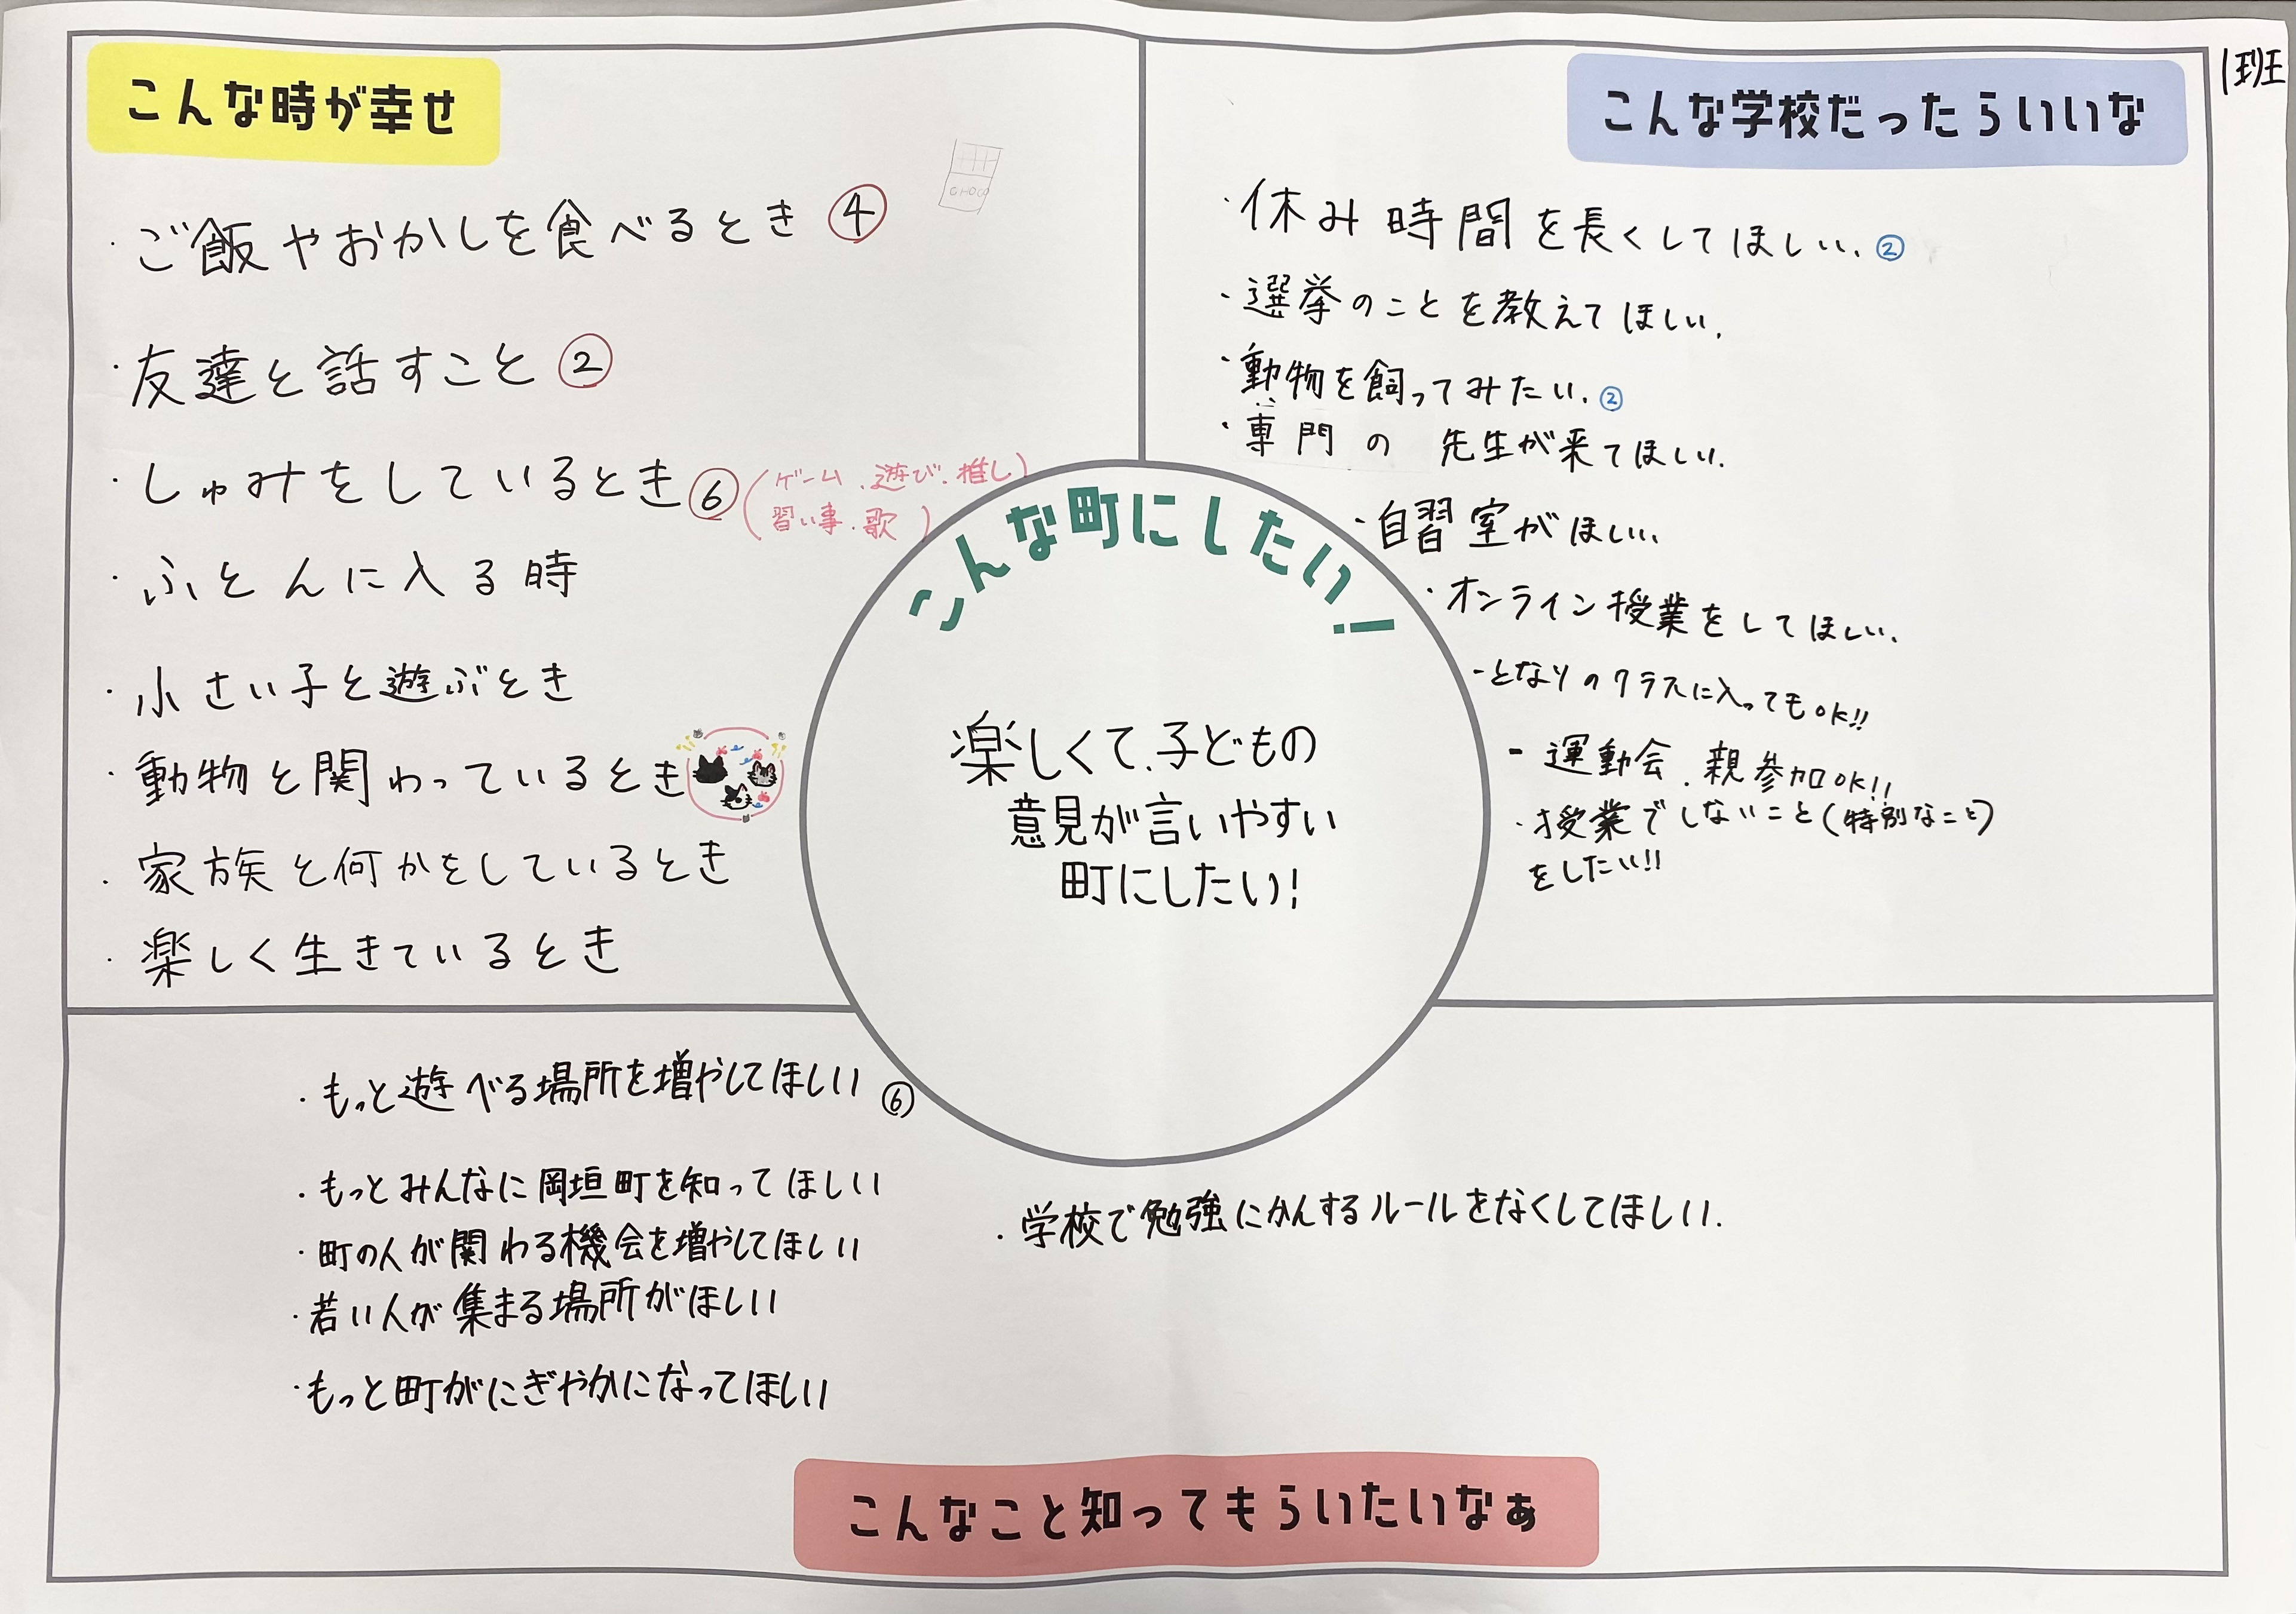 1班
こんな時が幸せ
・ご飯やおかしを食べるとき ④
CHOCO
・友達と話すこと ②
・しゅみをしているとき ⑥ (ゲーム.遊び.推し
習い事.歌)
・ふとんに入る時
・小さい子と遊ぶとき
・動物と関わっているとき
・家族と何かをしているとき
・楽しく生きているとき
こんな学校だったらいいな
・休み時間を長くしてほしい. ②
・選挙のことを教えてほしい.
・動物を飼ってみたい. ②
・専門の 先生が来てほしい.
・自習室がほしい.
・オンライン授業をしてほしい.
-となりのクラスに入ってもOK!!
- 運動会.親参加OK!!
・授業でしないこと(特別なこと)
をしたい!!
こんな町にしたい!
楽しくて.子どもの
意見が言いやすい
町にしたい!
・もっと遊べる場所を増やしてほしい ⑥
・もっとみんなに岡垣町を知ってほしい
・町の人が関わる機会を増やしてほしい
・若い人が集まる場所がほしい
・もっと町がにぎやかになってほしい
・学校で勉強にかんするルールをなくしてほしい.
こんなこと知ってもらいたいなぁ